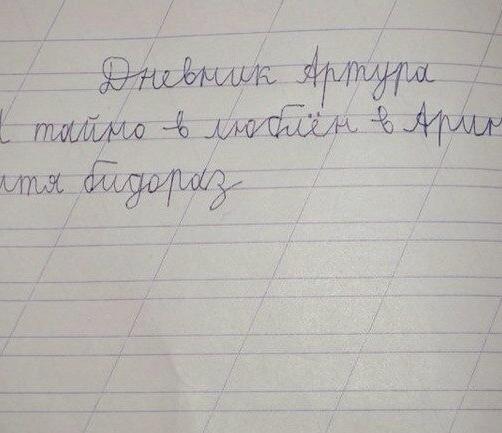 Дневник Артура
тайно в люблён в Арин
итя бидораз